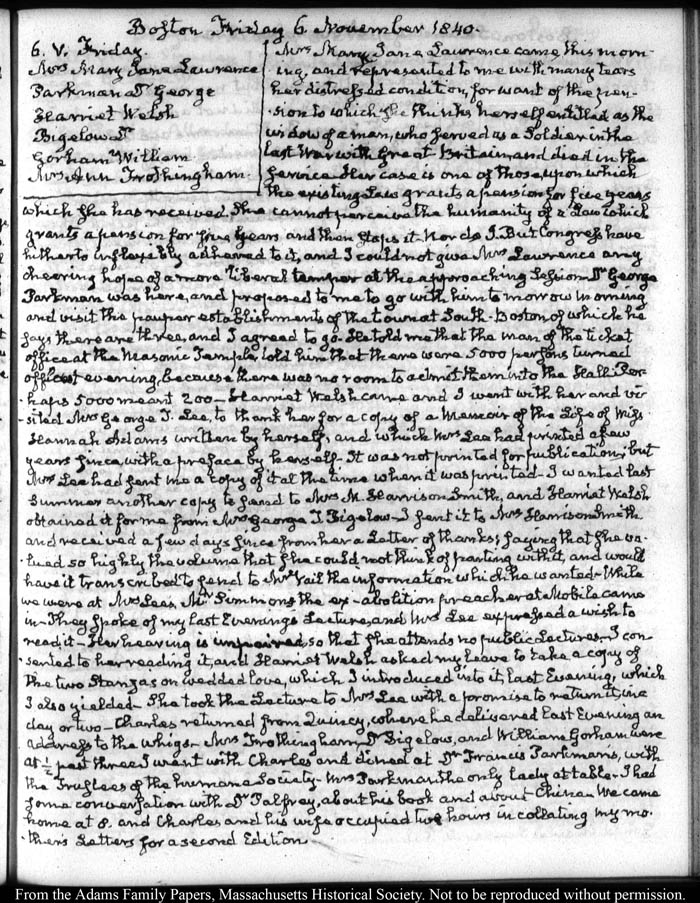 Boston Friday 6 November 1840.
6. V. Friday.
Mrs Mary Jane Lawrence
Parkman Dr George
Harriet Welsh
Bigelow Dr
Gorham William
Mrs Ann Frothingham.
Mrs Mary Jane Lawrence came this morn-
ing, and represented to me with many tears
her distressed condition, for want of the pen-
-sion to which she thinks herself entitled as the
widow of a man, who served as a Soldier in the
last War with Great Britain and died in the
service. Her case is one of those, upon which
the existing Law grants a pension for five years
which she has received. She cannot perceive the humanity of a Law which
grants a pension for five years and then stops it. Nor do I. But Congress have
hitherto inflexibly adhered to it, and I could not give Mrs Lawrence any
cheering hope of a more liberal temper at the approaching Session. Dr George
Parkman was here, and proposed to me to go with him to morrow morning
and visit the pauper establishments of the town at South-Boston of which he
says there are three, and I agreed to go. He told me that the man of the ticket
office at the Masonic Temple, told him that there were 5000 persons turned
off last evening, because there was no room to admit them into the Hall. Per-
haps 5000 meant 200 - Harriet Welsh came and I went with her and vi-
-sited Mrs George G. Lee, to thank her for a copy of a Memoir of the Life of Miss
Hannah Adams written by herself, and which Mrs Lee had printed a few
years since, with a preface by herself - It was not printed for publication; but
Mrs Lee had sent me a copy of it at the time when it was printed - I wanted last
Summer another copy to send to Mrs M. Harrison Smith, and Harriet Welsh
obtained it for me from Mrs George T. Bigelow - I sent it to Mrs Harrison Smith
and received a few days since from her a Letter of thanks; saying that she va-
-lued so highly the volume that she could not think of parting with it, and would
have it transcribed to send to Mr Vail the information which he wanted - While
we were at Mrs Lee's, Mr Simmons the ex-abolition preacher at Mobile came
in - They spoke of my last Evenings Lecture, and Mrs Lee expressed a wish to
read it - Her hearing is impaired, so that she attends no public Lectures - I con-
-sented to her reading it, and Harriet Welsh asked my leave to take a copy of
the two Stanzas on wedded love, which I introduced into it last Evening, which
I also yielded - She took the Lecture to Mrs Lee with a promise to return it in a
day or two - Charles returned from Quincy, where he delivered last Evening an
address to the whigs - Mrs Frothingham, Dr Bigelow, and William Gorham were
At ½ past three I went with Charles and dined at Dr Francis Parkman's, with
the Trustees of the humane Society - Mrs Parkman the only lady at table. I had
some conversation with Dr Palfrey, about his book and about China. We came
home at 8. and Charles and his wife occupied two hours in collating my mo-
-ther's Letters for a second Edition
From the Adams Family Papers, Massachusetts Historical Society. Not to be reproduced without permission.